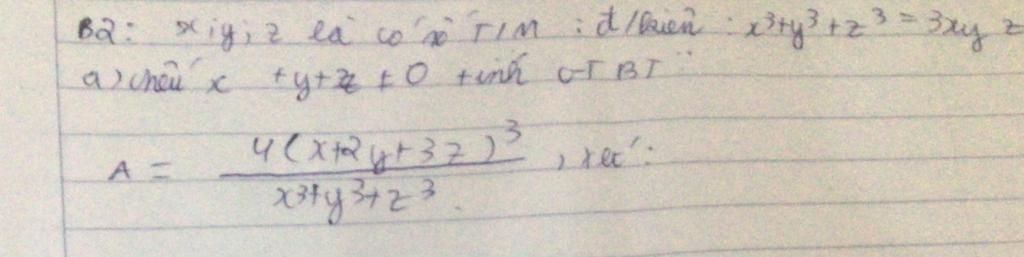 B2: x; y; z là có số T/M : đ/kiện : x³+y³+z³ = 3xyz
a) nếu x +y+z ≠ 0 tính GT BT
A = 4(x+2y+3z)³ / x³+y³+z³